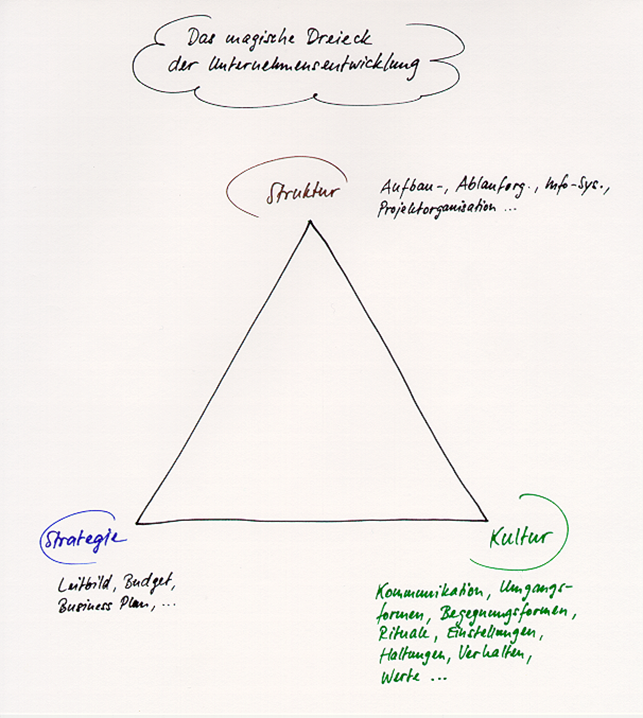 Das magische Dreieck
der Unternehmensentwicklung
Struktur
Aufbau-, Ablauforg., Info-Sys.,
Projektorganisation ...
Strategie
Leitbild, Budget,
Business Plan, ...
Kultur
Kommunikation, Umgangs-
formen, Begegnungsformen,
Rituale, Einstellungen,
Haltungen, Verhalten,
Werte ...